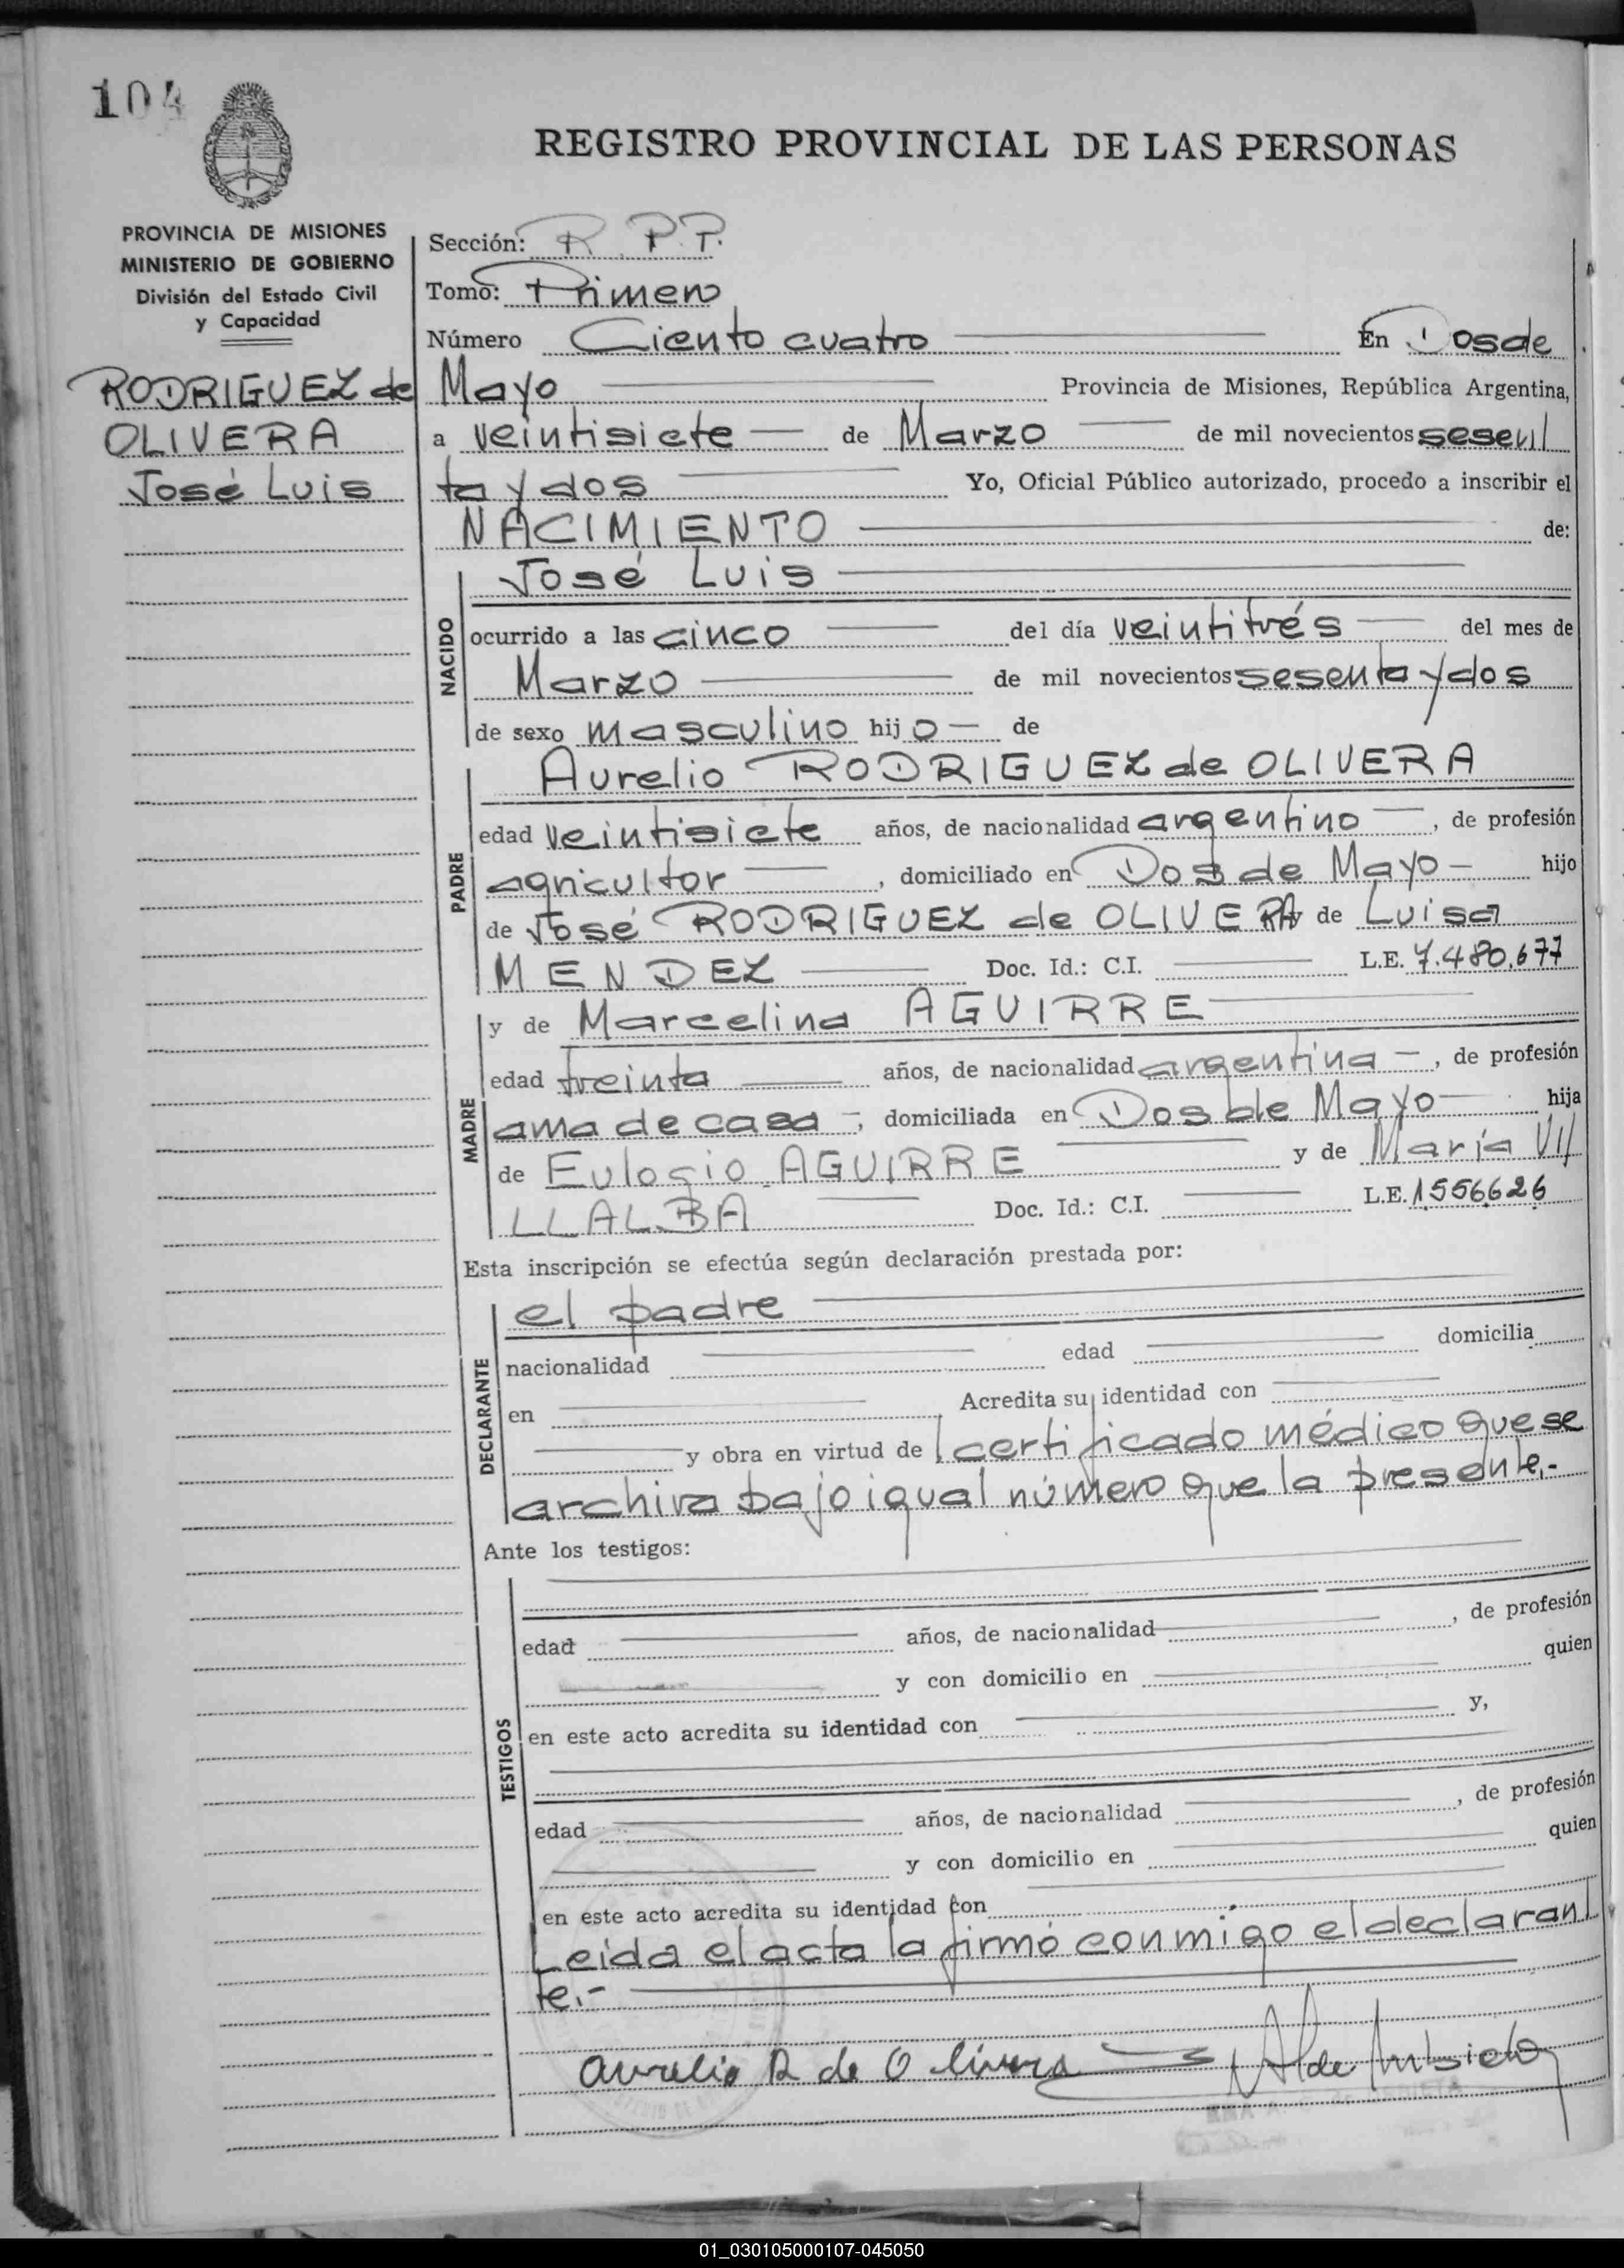 104
REGISTRO PROVINCIAL DE LAS PERSONAS
PROVINCIA DE MISIONES
MINISTERIO DE GOBIERNO
División del Estado Civil
y Capacidad
RODRIGUEZ de
OLIVERA
José Luis
Sección: R. P.P.
Tomo: Primero
Número Ciento cuatro En Dos de
Mayo Provincia de Misiones, República Argentina,
a veintisiete de Marzo de mil novecientos sesen
ta y dos Yo, Oficial Público autorizado, procedo a inscribir el
NACIMIENTO de:
NACIDO
José Luis
ocurrido a las cinco del día veintitrés del mes de
Marzo de mil novecientos sesenta y dos
de sexo masculino hijo de
PADRE
Aurelio RODRIGUEZ de OLIVERA
edad veintisiete años, de nacionalidad argentino, de profesión
agricultor, domiciliado en Dos de Mayo hijo
de José RODRIGUEZ de OLIVERA y de Luisa
MENDEZ Doc. Id.: C.I. L.E. 7.480.677
MADRE
y de Marcelina AGUIRRE
edad treinta años, de nacionalidad argentina, de profesión
ama de casa, domiciliada en Dos de Mayo hija
de Eulogio AGUIRRE y de María VI
LLALBA Doc. Id.: C.I. L.E. 1556626
Esta inscripción se efectúa según declaración prestada por:
DECLARANTE
el padre
nacionalidad edad domicilia
en Acredita su identidad con
y obra en virtud de certificado médico que se
archiva bajo igual número que la presente.-
Ante los testigos:
TESTIGOS
edad años, de nacionalidad , de profesión
y con domicilio en quien
en este acto acredita su identidad con y,
edad años, de nacionalidad , de profesión
y con domicilio en quien
en este acto acredita su identidad con
Leída el acta la firmó conmigo el declaran
te.-
Aurelio R de Olivera
01_030105000107-045050